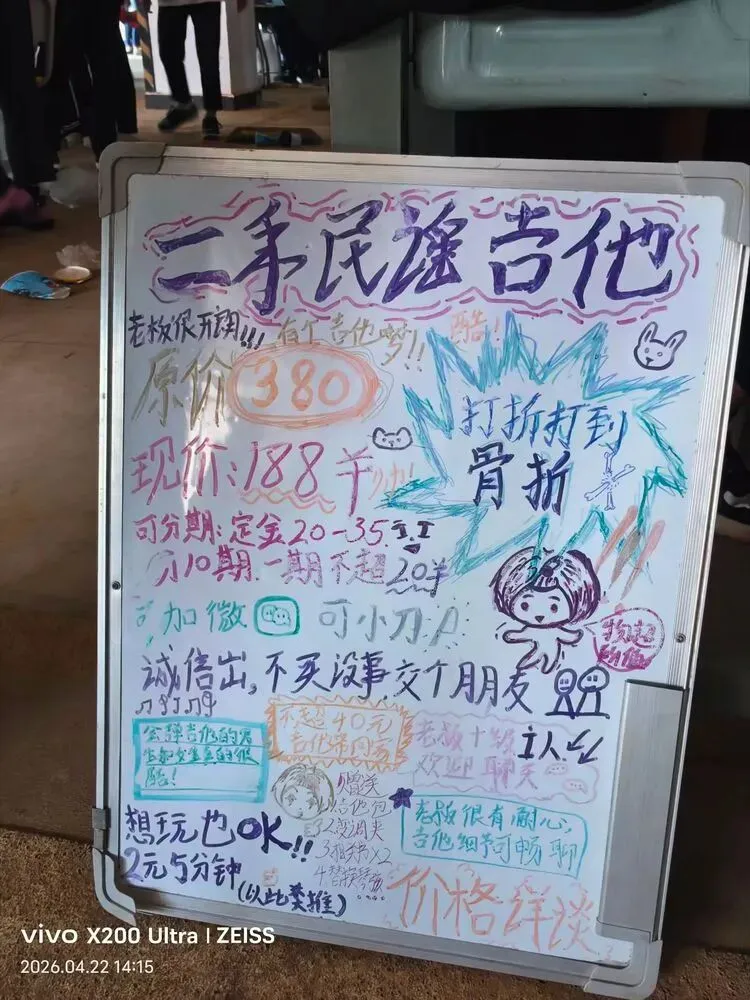 二手民谣吉他
老板很开朗!!! 有个吉他梦!! 酷!
原价 380
打折打到
骨折
现价:188羊
可分期:定金20-35
分10期.一期不超20羊
可加微 可小刀
物超所值
诚信出,不买没事交个朋友
会弹吉他的男
生和女生真的很
酷!
不超40元
吉他带回家
老板十级i人
欢迎聊天
赠送
1吉他包
2变调夹
3拨片X2
4替换琴弦
老板很有耐心,
吉他细节可畅聊
想玩也OK!!
2元5分钟
(以此类推)
价格详谈
vivo X200 Ultra | ZEISS
2026.04.22 14:15